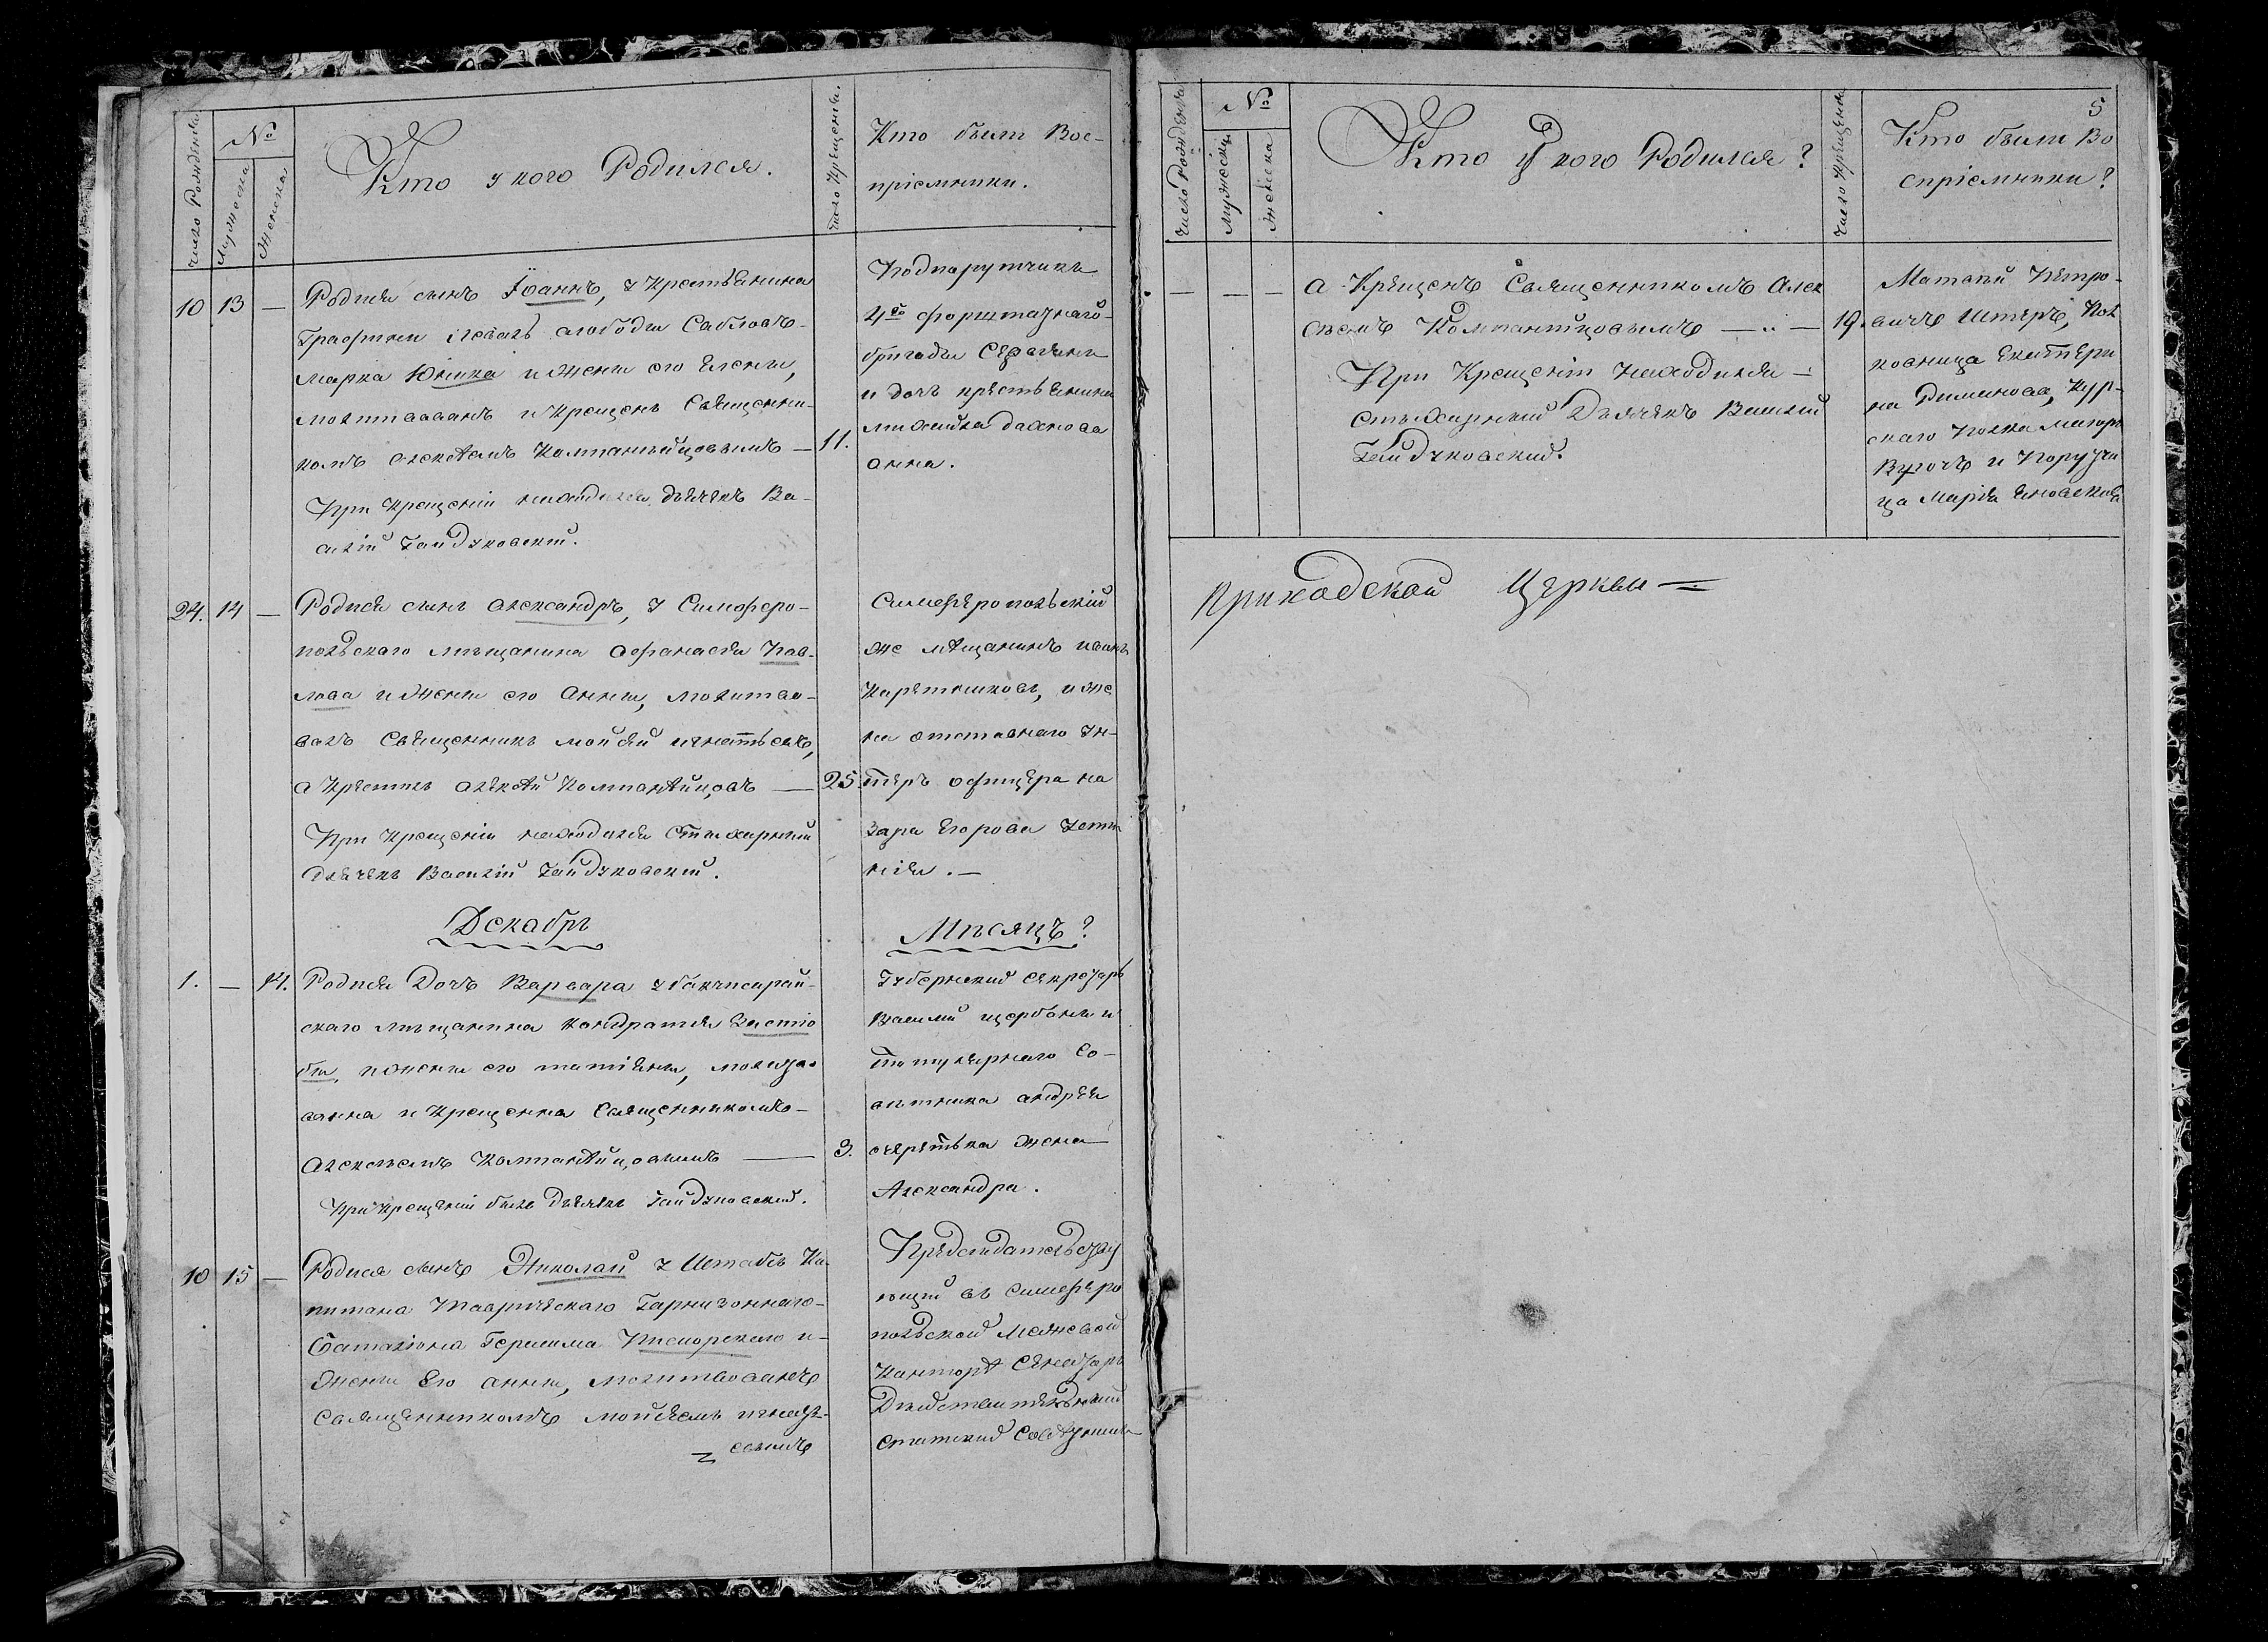 Число Рожденія
№
Мужеска
Женска
Кто у кого Родился.
Число Крещенія.
Кто были Вос-
пріемники.
10 13 — Родился сынъ Іоаннъ, у Крестьянина
слободы Сабловъ-
Марка Юника и жены его Елены,
молитвованъ и крещенъ Священни-
комъ Алексѣемъ Компанѣйцовымъ — 11.
При крещеніи находился дьячекъ Ва-
силій Гайдуковскій.
Подпорутчикъ
4й
бригады
и дочь крестьянина
Михайла Дахнова
Анна.
24. 14 — Родися сынъ Александръ, у Симферо-
польскаго мѣщанина Афанасія Пав-
лова и жены его Анны, молитво-
валъ Священникъ Мойсей Игнатьевъ,
а Крестилъ Алексѣй Компанѣйцовъ — 25.
При Крещеніи находился Стихарный
Дьячекъ Василій Гайдуковскій.
Симферопольскій
же мѣщанинъ Иванъ
и же
на отставнаго Ун-
теръ офицера На
зара Егорова
Декабрь Мѣсяцъ?
1. — 14. Родися Дочь Варвара у бакчисарай-
скаго мѣщанина Кондратія
и жены его Татіяны, молитво-
ванна и Крещенна Священникомъ-
Алексѣемъ Компанѣйцовымъ — 3.
При крещеніи былъ Дьячекъ Гайдуковскій.
Губернскій Секретарь
Василій Щербань и
титулярнаго Со-
вѣтника Андрея
жена
Александра.
10 15 — Родися сынъ Николай у Штабсъ Ка-
питана Таврическаго Гарнизоннаго-
Баталіона Герасима и-
жены Его Анны, молитвованъ
Священникомъ Мойсеемъ Игнать-
евымъ
Предсѣдательству
ющій въ Симферо
польской Межевой
Канторѣ
Дѣйствительный
Статскій Совѣтникъ
5
Число Рожденія
№
Мужеска
Женска
Кто у кого Родился?
Число Крещенія
Кто были Во
спріемники?
— — — а Крещенъ Священникомъ Алек
сѣемъ Компанѣйцовымъ — „ — 19.
При Крещеніи находился —
Стихарный Дьячекъ Василій
Гайдуковскій.
Матвей Петро-
вичъ Штеръ, Пол
ковница Екатери
на Риманова, Кур-
скаго Полка Маиоръ
и Поручи
ца Марія Яновскія
Приходской Церквы —